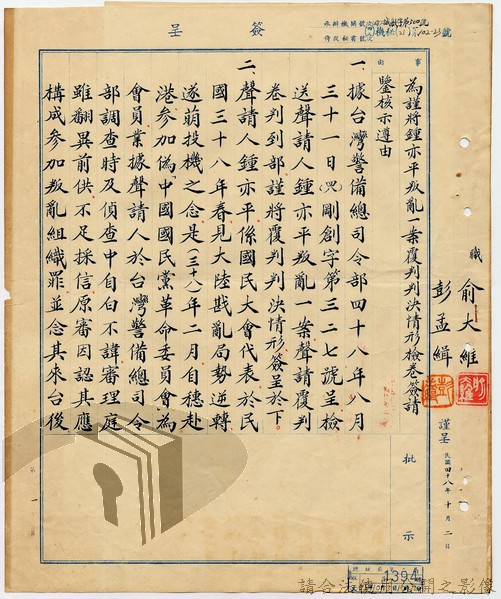 簽呈
第102-23號
事由
為謹將鍾亦平叛亂一案覆判判決情形檢卷簽請
鑒核示遵由
一、據台灣警備總司令部四十八年八月
三十一日(48)剛創字第三二七號呈檢
送聲請人鍾亦平叛亂一案聲請覆判
卷判到部謹將覆判判決情形簽呈於下
二、聲請人鍾亦平係國民大會代表於民
國三十八年春見大陸戡亂局勢逆轉
遂萌投機之念是(三十八)年二月自穗赴
港參加偽中國國民黨革命委員會為
會員業據聲請人於台灣警備總司令
部調查時及偵查中自白不諱審理庭
雖翻異前供不足採信原審因認其應
構成參加叛亂組織罪並念其來台後
職
俞大維
彭孟緝
謹呈
民國四十八年十月二日
批示
第一
1394
請合法使用公開之影像